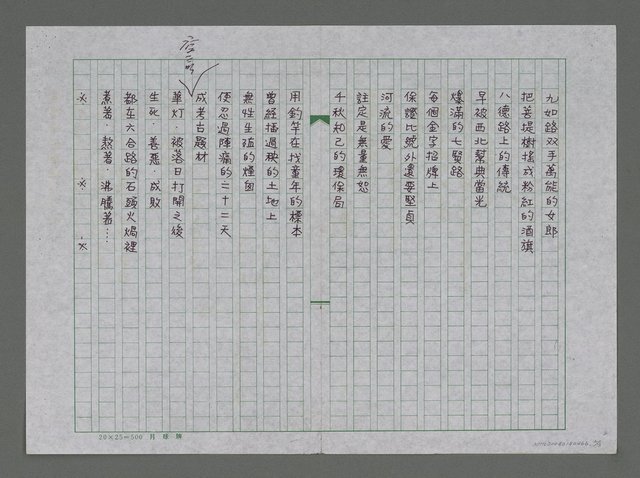 九如路双手萬能的女郎
把菩提樹搖成粉紅的酒旗
八德路上的傳統
早被西北幫典當光
爆滿的七賢路
每個金字招牌上
保證比號外還要堅貞
河流的愛
註定是無量無恕
千秋知己的環保局
用釣竿在找童年的標本
曾經插過秧的土地上
無性生殖的煙囪
使忍過陣痛的二十二天
成考古題材
空二行
華灯·被落日打開之後
生死·善惡·成敗
都在六合路的石頭火焗裡
煮著·熬著·沸騰著……
※ ※ ※
20×25=500 月球牌